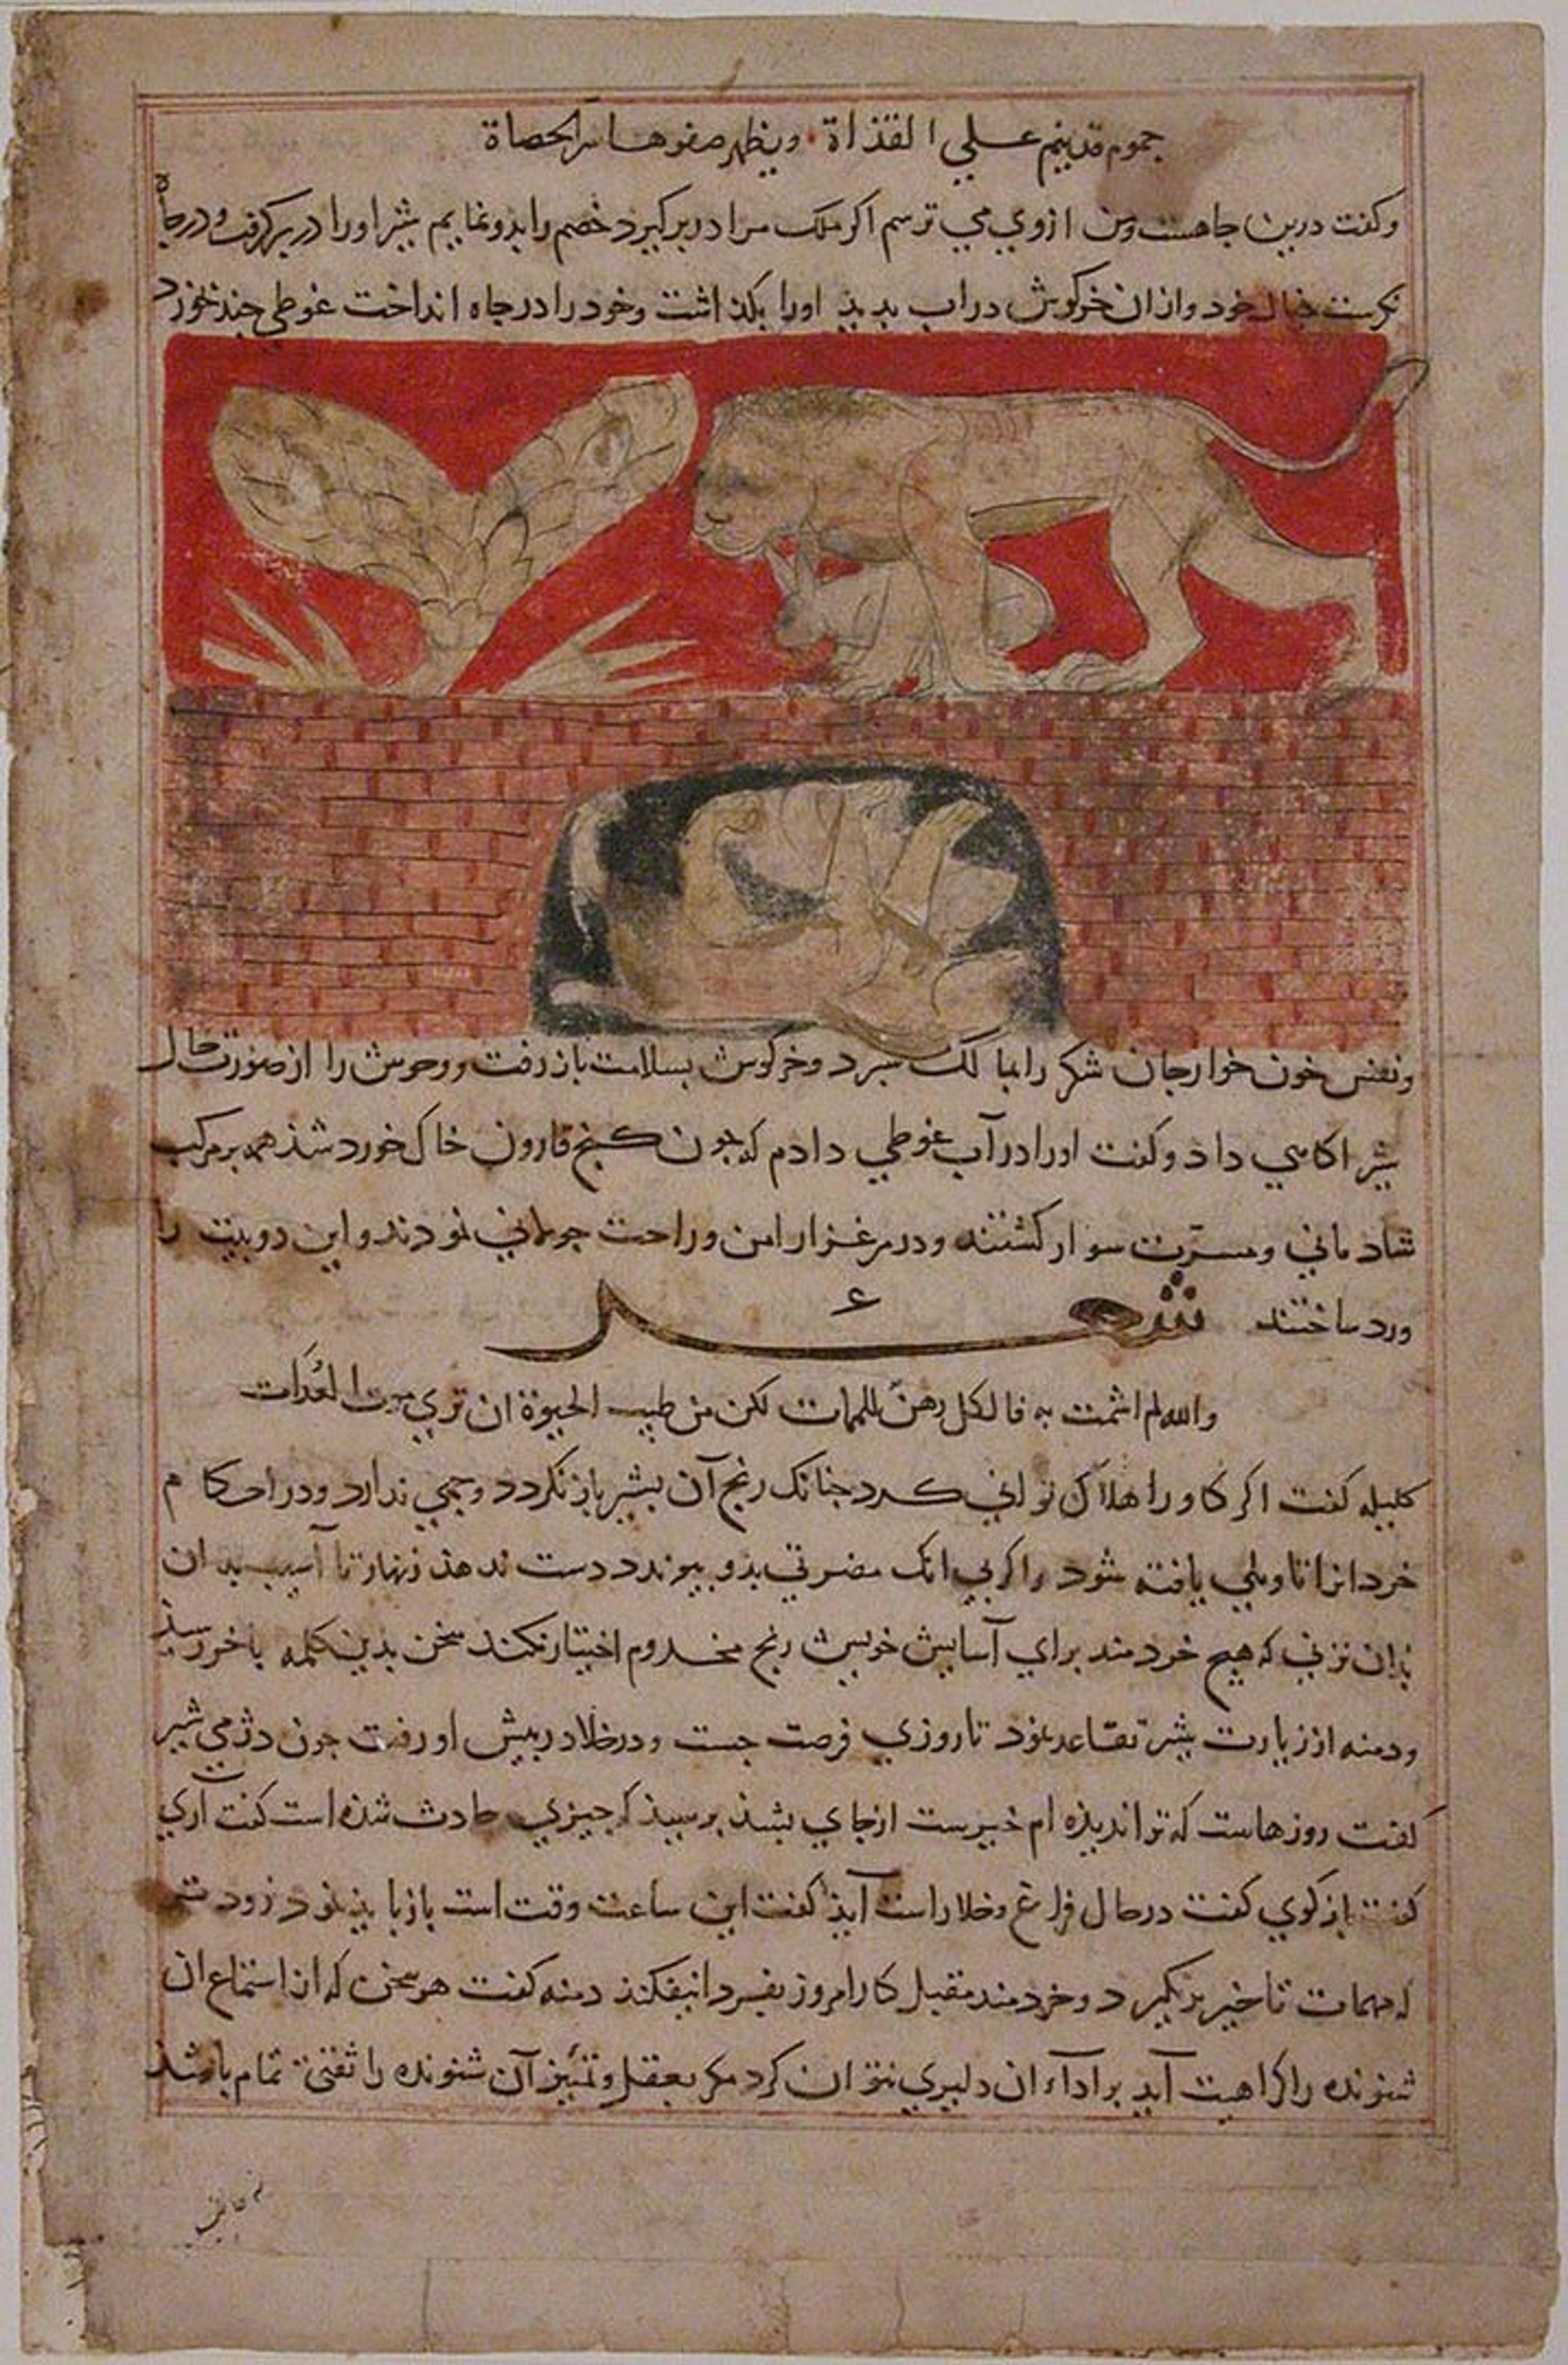 جموم قد ینم علی القذاة ویظهر صفوها سر الحصاة
وکفت درین جاهست ومن ازوی می ترسم اکر ملک مرا در بر کیرد خصم را بدو نمایم شیر اورا در بر کرفت ودر جاه
نکرست خیال خود وازان خرکوش دراب بدید اورا بکذاشت وخود را در جاه انداخت غوطی جند خورد
ونفس خون خوار جان شکر را بما لک سبرد وخرکوش بسلامت باز رفت ووحوش را از صورت حال
شیر اکاهی داد وکفت اورا در آب غوطی دادم که جون کنج قارون خاک خورد شد همه بر مرکب
شادمانی ومسرّت سوار کشتند ودر مرغزار امن وراحت جولانی نمودند واین دو بیت را
ورد ساختند شعر
والله لم اشمت به فالکل رهنٌ للممات لکن من طیب الحیوة ان تری موت العُدَات
کلیله کفت اکر کاو را هلاک توانی کرد جنانک رنج آن بشیر باز نکردد وجهی ندارد ودر احکام
خرد انرا تاویلی یافته شود واکر بی انک مضرتی بدو بیوندد دست ندهد زنهار تا آسیب بدان
نزنی که هیج خردمند برای آسایش خویش رنج مخدوم اختیار نکند سخن بدین کلمه باخر رسید
ودمنه از زیارت شیر تقاعد نمود تا روزی فرصت جست ودر خلا در بیش او رفت جون دژمی شیر
کفت روزهاست که ترا ندیده ام خیرست ازجای بشد برسید که جیزی حادث شده است کفت آری
کفت باز کوی کفت در حال فراغ وخلا راست آید کفت این ساعت وقت است باز باید نمود زودتر
که مهمات تاخیر بر نکیرد وخردمند مقبل کار امروز بفردا نیفکند دمنه کفت هر سخن که از استماع ان
شنونده را کراهیت آید بر اداء ان دلیری نتوان کرد مکر بعقل وتمییز آن شنونده را ثقتی تمام باشد